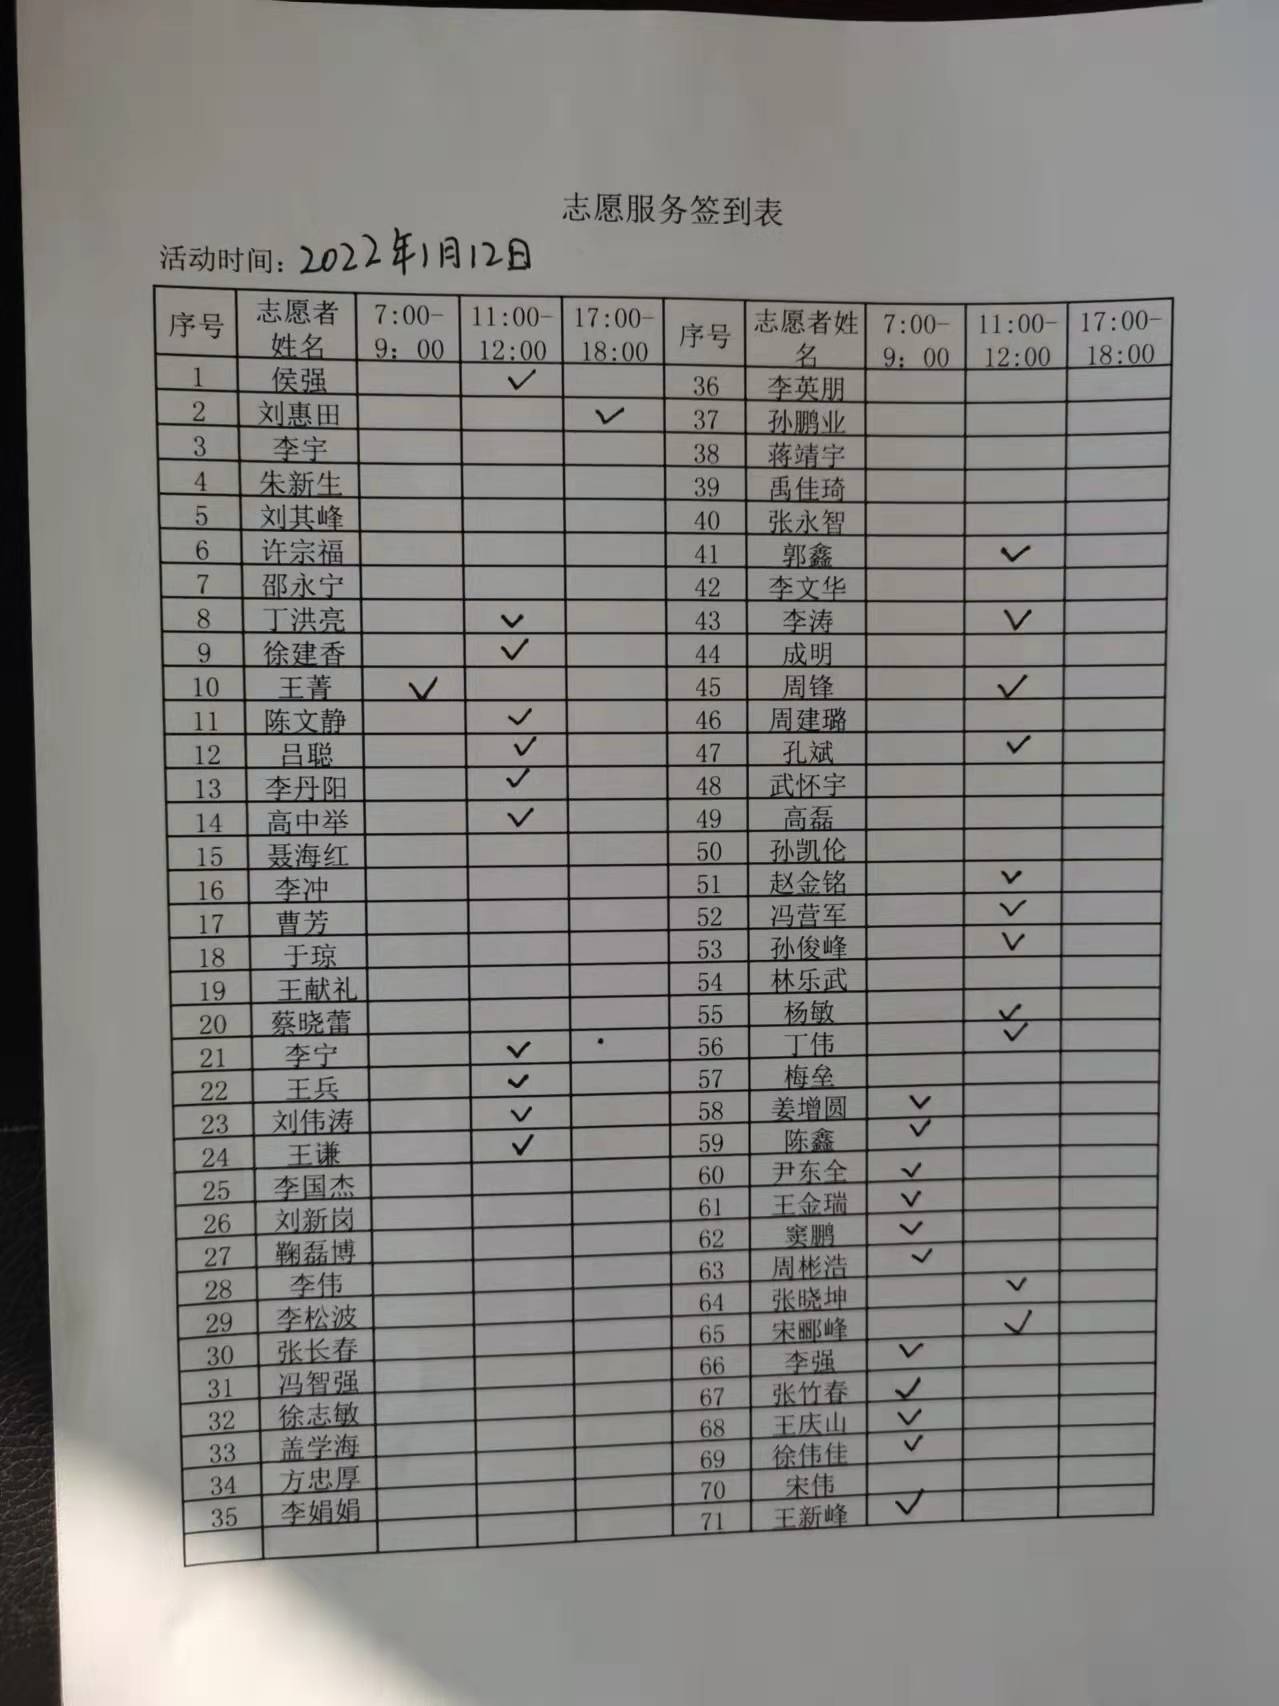 志愿服务签到表
活动时间：2022年1月12日
序号 志愿者姓名 7:00-9：00 11:00-12:00 17:00-18:00 序号 志愿者姓名 7:00-9：00 11:00-12:00 17:00-18:00
1 侯强 ✓ 36 李英朋
2 刘惠田 ✓ 37 孙鹏业
3 李宇 38 蒋靖宇
4 朱新生 39 禹佳琦
5 刘其峰 40 张永智
6 许宗福 41 郭鑫 ✓
7 邵永宁 42 李文华
8 丁洪亮 ✓ 43 李涛 ✓
9 徐建香 ✓ 44 成明
10 王菁 ✓ 45 周锋 ✓
11 陈文静 ✓ 46 周建璐
12 吕聪 ✓ 47 孔斌 ✓
13 李丹阳 ✓ 48 武怀宇
14 高中举 ✓ 49 高磊
15 聂海红 50 孙凯伦
16 李冲 51 赵金铭 ✓
17 曹芳 52 冯营军 ✓
18 于琼 53 孙俊峰 ✓
19 王献礼 54 林乐武
20 蔡晓蕾 55 杨敏 ✓
21 李宁 ✓ 56 丁伟 ✓
22 王兵 ✓ 57 梅垒
23 刘伟涛 ✓ 58 姜增圆 ✓
24 王谦 ✓ 59 陈鑫 ✓
25 李国杰 60 尹东全 ✓
26 刘新岗 61 王金瑞 ✓
27 鞠磊博 62 窦鹏 ✓
28 李伟 63 周彬浩 ✓
29 李松波 64 张晓坤 ✓
30 张长春 65 宋郦峰 ✓
31 冯智强 66 李强 ✓
32 徐志敏 67 张竹春 ✓
33 盖学海 68 王庆山 ✓
34 方忠厚 69 徐伟佳 ✓
35 李娟娟 70 宋伟
71 王新峰 ✓